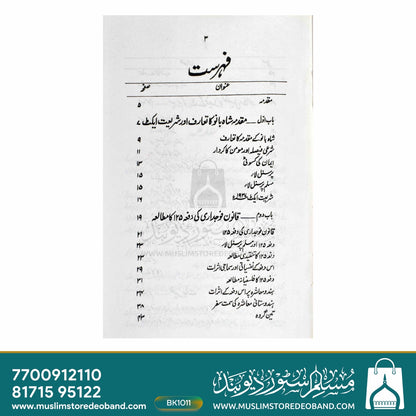 ۳
فہرست
عنوان صفحہ
مقدمہ ۵
باب اول ــ مقدمہ شاہ بانو کا تعارف اور شریعت ایکٹ ۷
شاہ بانو کے مقدمہ کا تعارف ۹
شرعی فیصلہ اور مومن کا کردار ۱۱
ایمان کی کسوٹی ۱۳
پرسنل لار ۱۵
مسلم پرسنل لار ۱۵
شریعت ایکٹ ۱۹۳۷ء ۱۷
باب دوم ــ قانون فوجداری کی دفعہ ۱۲۵ کا مطالعہ ۱۹
قانون فوجداری کی دفعہ ۱۲۵ ۲۱
دفعہ ۱۲۵ اور مسلم پرسنل لار ۲۳
دفعہ ۱۲۵ کا تنقیدی مطالعہ
اس دفعہ کے نفسیاتی اور سماجی اثرات ۲۹
دفعہ ۱۲۵ کا فلسفیانہ مطالعہ
ہندو معاشرہ پر اس دفعہ کے اثرات ۳۴
ہندوستانی معاشرہ کی سمت سفر ۳۸
تین گروہ ۴۳
WWW.MUSLIMSTOREDEOBAND.COM
7700912110
81715 95122
www.muslimstoredeoband.com
BK1011
مسلم سٹور دیوبند
www.muslimstoredeoband.com